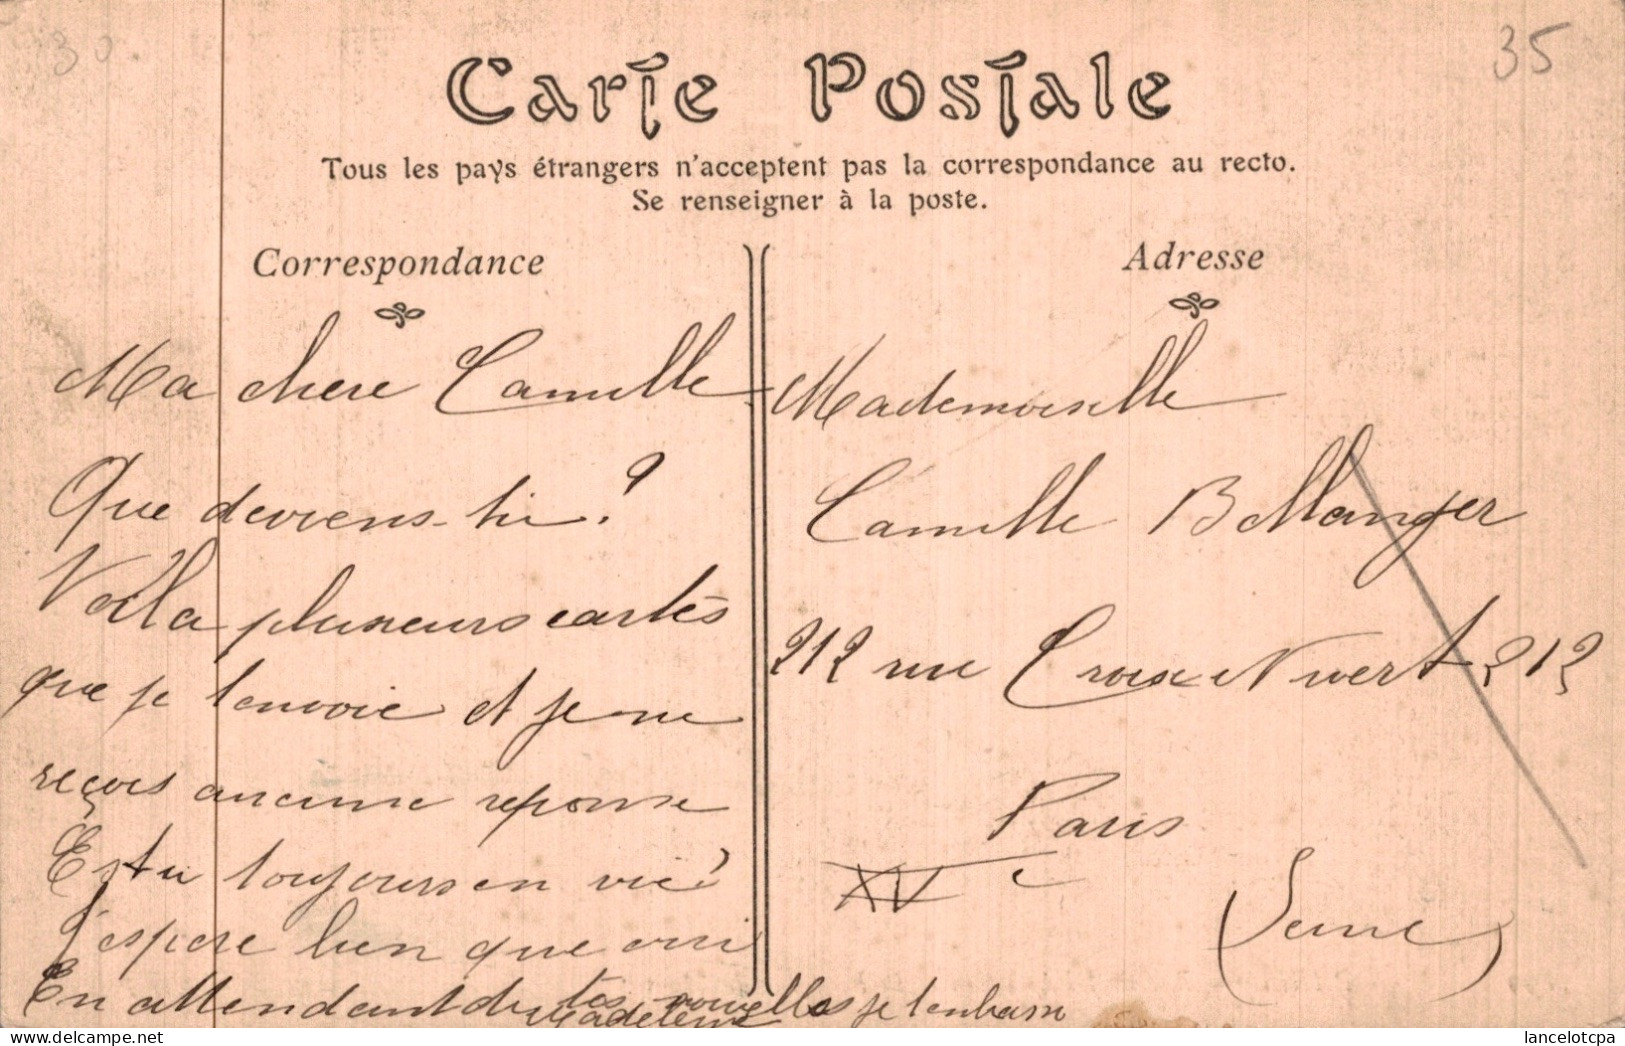 30.
35
Carte Postale
Tous les pays étrangers n'acceptent pas la correspondance au recto.
Se renseigner à la poste.
Correspondance
Ma chere Camille
Que deviens-tu?
Voila plusieurs cartes
que je t'envoie et je ne
reçois aucune reponse
Es tu toujours en vie?
J'espere bien que oui
En attendant de tes nouvelles je t'embrasse
Madeleine
Adresse
Mademoiselle
Camille Bellanger
212 rue Croix Nivert 212
Paris
XVe
(Seine)
delcampe.net
lancelotcpa